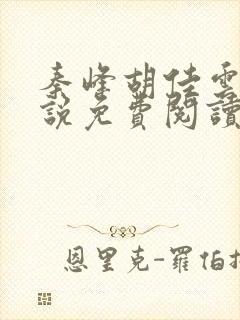 秦峰胡佳雲
說免費閱讀
恩里克-羅伯